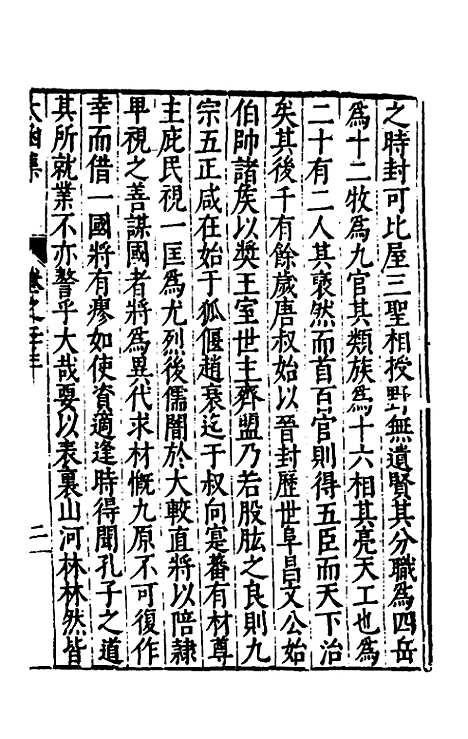 之時封可比屋三聖相授野無遺賢其分職爲四岳
爲十二牧爲九官其類族爲十六相其亮天工也爲
二十有二人其褎然而首百官則得五臣而天下治
矣其後千有餘歲唐叔始以晉封歷世阜昌文公始
伯帥諸矦以奬王室世主齊盟乃若股肱之良則九
宗五正咸在始于狐偃趙衰迄于叔向寔蕃有材尊
主庇民視一匡爲尤烈後儒闇於大較直將以陪隷
卑視之善謀國者將爲異代求材慨九原不可復作
幸而借一國將有瘳如使資適逢時得聞孔子之道
其所就業不亦謷乎大哉要以表裏山河林林然皆
太函集
卷之
二